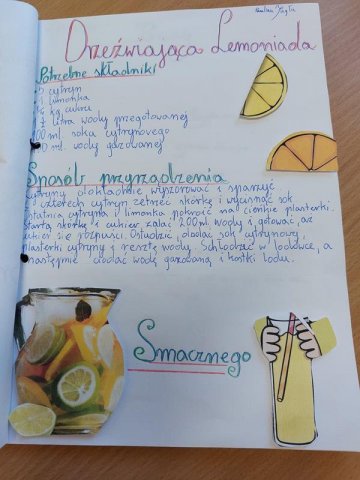 Orzeźwiająca Lemoniada
Potrzebne składniki
5 cytryn
1 limonka
kg cukru
litra wody przegotowanej
100 ml soku cytrynowego
ml wody gazowanej
Sposób przyrządzenia
Cytryny dokładnie wyszorować i sparzyć
czterech cytryn zetrzeć skórkę i wycisnąć sok
Ostatnią cytrynę i limonkę pokroić na cienkie plasterki.
Startą skórkę i cukier zalać 200ml wody i gotować, aż
cukier się rozpuści. Ostudzić, dodać sok cytrynowy,
plasterki cytryny i resztę wody. Schłodzić w lodówce, a
następnie dodać wodę gazowaną i kostki lodu.
Smacznego